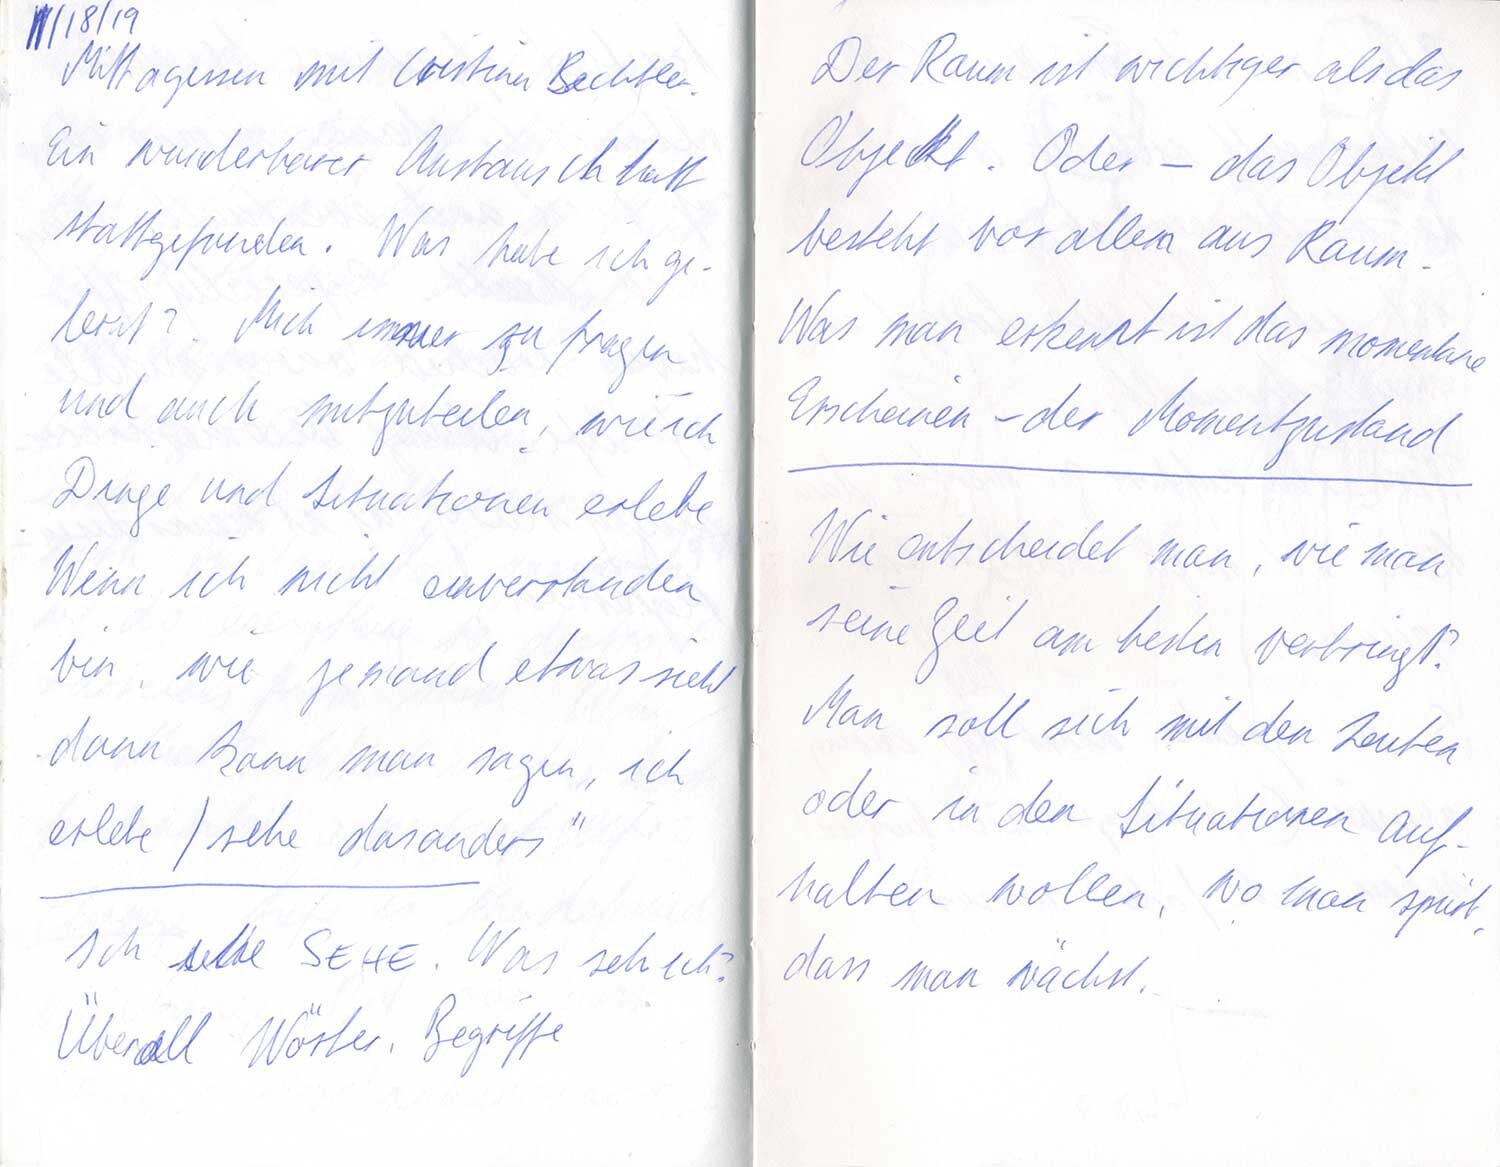 11/18/19
Mittagessen mit Cristina Bechtler.
Ein wunderbarer Austausch hatt
stattgefunden. Was habe ich ge-
lernt? Mich immer zu fragen
und auch mitzuteilen, wie ich
Dinge und Situationen erlebe
Wenn ich nicht einverstanden
bin, wie jemand etwas sieht
dann kann man sagen, ich
erlebe / sehe das anders"
Ich sehe SEHE. Was seh ich?
Überall Wörter. Begriffe
Der Raum ist wichtiger als das
Objekt. Oder – das Objekt
besteht vor allem aus Raum.
Was man erkennt ist das momentane
Erscheinen – der Momentzustand
Wie entscheidet man, wie man
seine Zeit am besten verbringt?
Man soll sich mit den Leuten
oder in den Situationen auf-
halten wollen, wo man spürt,
dass man wächst.